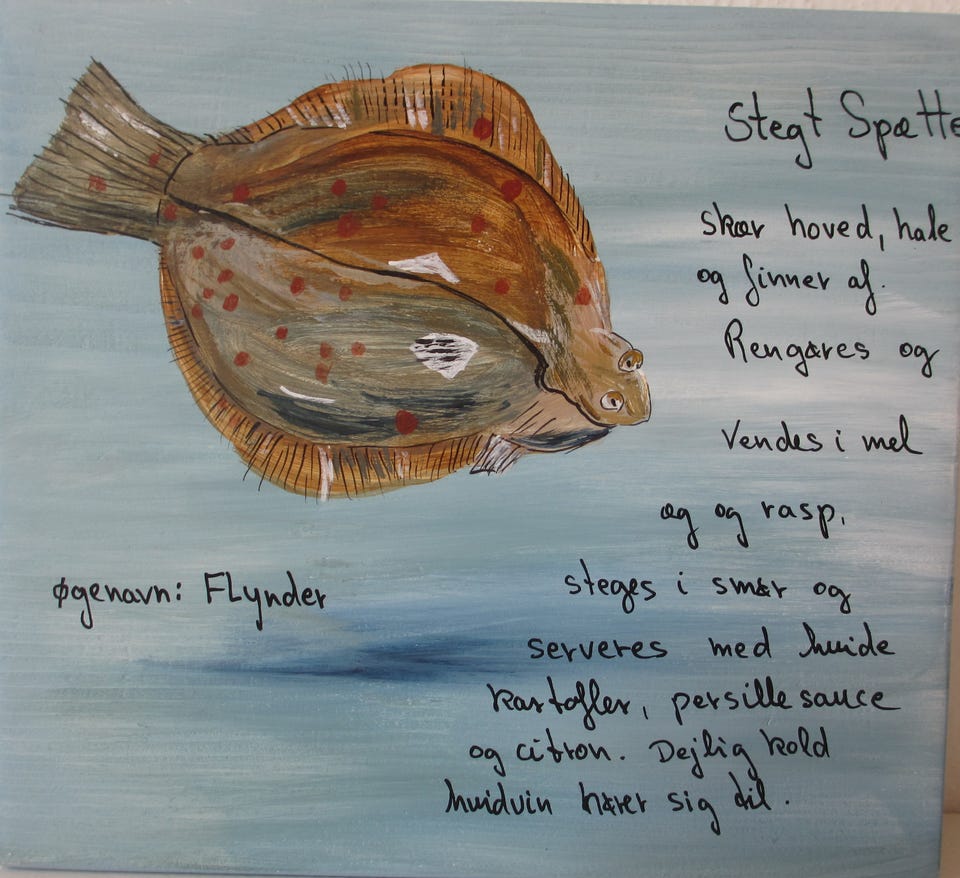 Stegt Spætte
skær hoved, hale
og finner af.
Rengøres og
Vendes i mel
æg og rasp,
steges i smør og
serveres med hvide
kartofler, persillesauce
og citron. Dejlig kold
hvidvin hører sig til.
øgenavn: Flynder